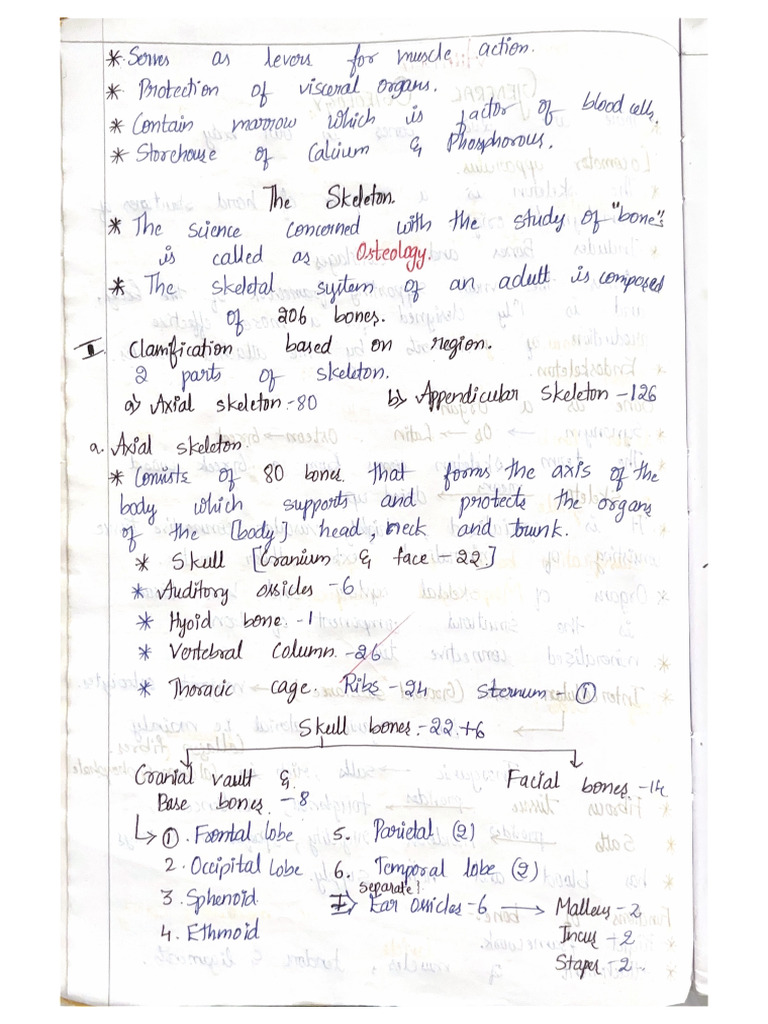 * Serves as levers for muscle action.
* Protection of visceral organs.
* Contain marrow which is factor of blood cells.
* Storehouse of Calcium & Phosphorous.
The Skeleton.
* The science concerned with the study of "bone"
is called as Osteology.
* The skeletal system of an adult is composed
of 206 bones.
I Classification based on region.
2 parts of skeleton.
a) Axial skeleton - 80 b) Appendicular skeleton - 126
a. Axial skeleton.
* Consists of 80 bones that forms the axis of the
body which supports and protects the organs
of the [body] head, neck and trunk.
* Skull [Cranium & face - 22]
* Auditory ossicles - 6
* Hyoid bone - 1
* Vertebral Column - 26
* Thoracic cage. Ribs - 24 Sternum - ①
Skull bones. - 22 + 6
Cranial vault & Facial bones. - 14
Base bones. - 8
① . Frontal lobe 5. Parietal (2)
2. Occipital lobe 6. Temporal lobe (2)
separate!
3. Sphenoid I) Ear ossicles - 6 → Malleus - 2
4. Ethmoid Incus - 2
Stapes - 2